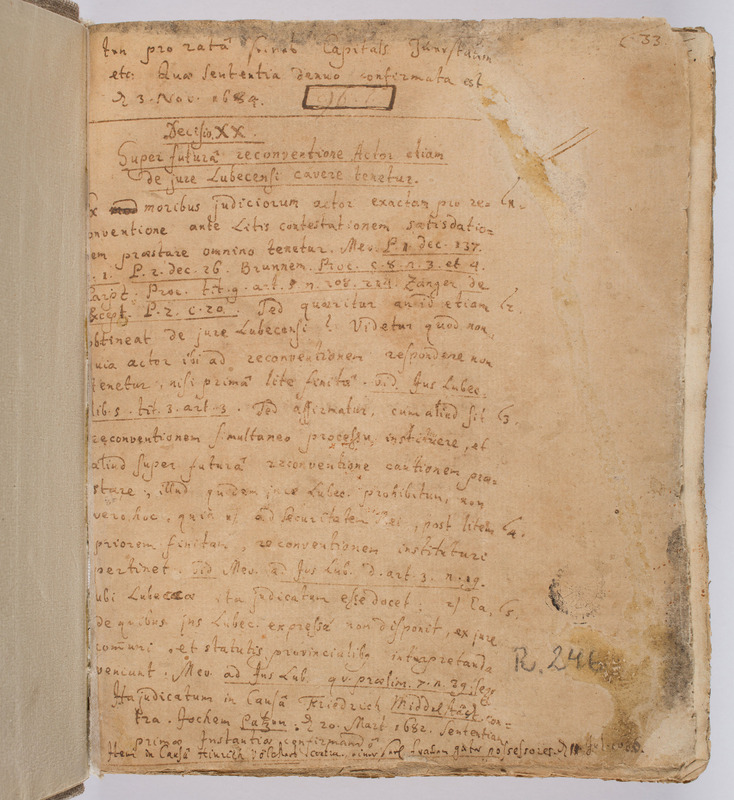 pro ratâ Capitals
etc: Quæ Sententia denuo confirmata est
3. Nov. 1684.
33
Decisio XX.
Super futurâ reconventione Actor etiam
de jure Lubecensi cavere tenetur.
moribus judiciorum actor exactam pro reo
onventione ante Litis contestationem satisdatio=
nem præstare omnino tenetur. Mev. P. 1. dec. 137.
1. P. 2. dec. 26. Brunnem. Proc. c. 8. n. 3. et 4.
Carpz. Proc. tit. 9. art. 5 n. 208. Zanger de
Except. P. 2. c. 20. Sed quæritur an id etiam 2.
obtineat de jure Lubecensi? Videtur quod non,
quia actor ibi ad reconventionem respondere non
tenetur, nisi primâ lite finitâ. vid. Jus Lubec.
lib. 5. tit. 3. art. 3. Sed affirmatur, cum aliud sit 3.
reconventionem simultaneo processu instituere, et
aliud super futurâ reconventione cautionem præ=
stare, illud quidem jure Lubec. prohibitum, non
vero hoc, quin ad securitatem Rei, post litem 4.
priorem finitam, reconventionem instituturi
pertinet. vid Mev. ad Jus Lub. d. art. 3. n. 19.
ubi Lubecæ ita judicatum esse docet; Ea, 5.
de quibus jus Lubec. expressè non disponit, ex jure
comuni et statutis provincialibus interpretanda
veniunt. Mev. ad Jus Lub. qv. prælim. 7. n. 29. seq
R. 246
Ita judicatum in Causâ Friedrich Middelstädt con=
tra. Jochem 20. Mart 1682. Sententiam
primæ Instantiæ confirmando
Item in Causâ Heinrich contra possessores.